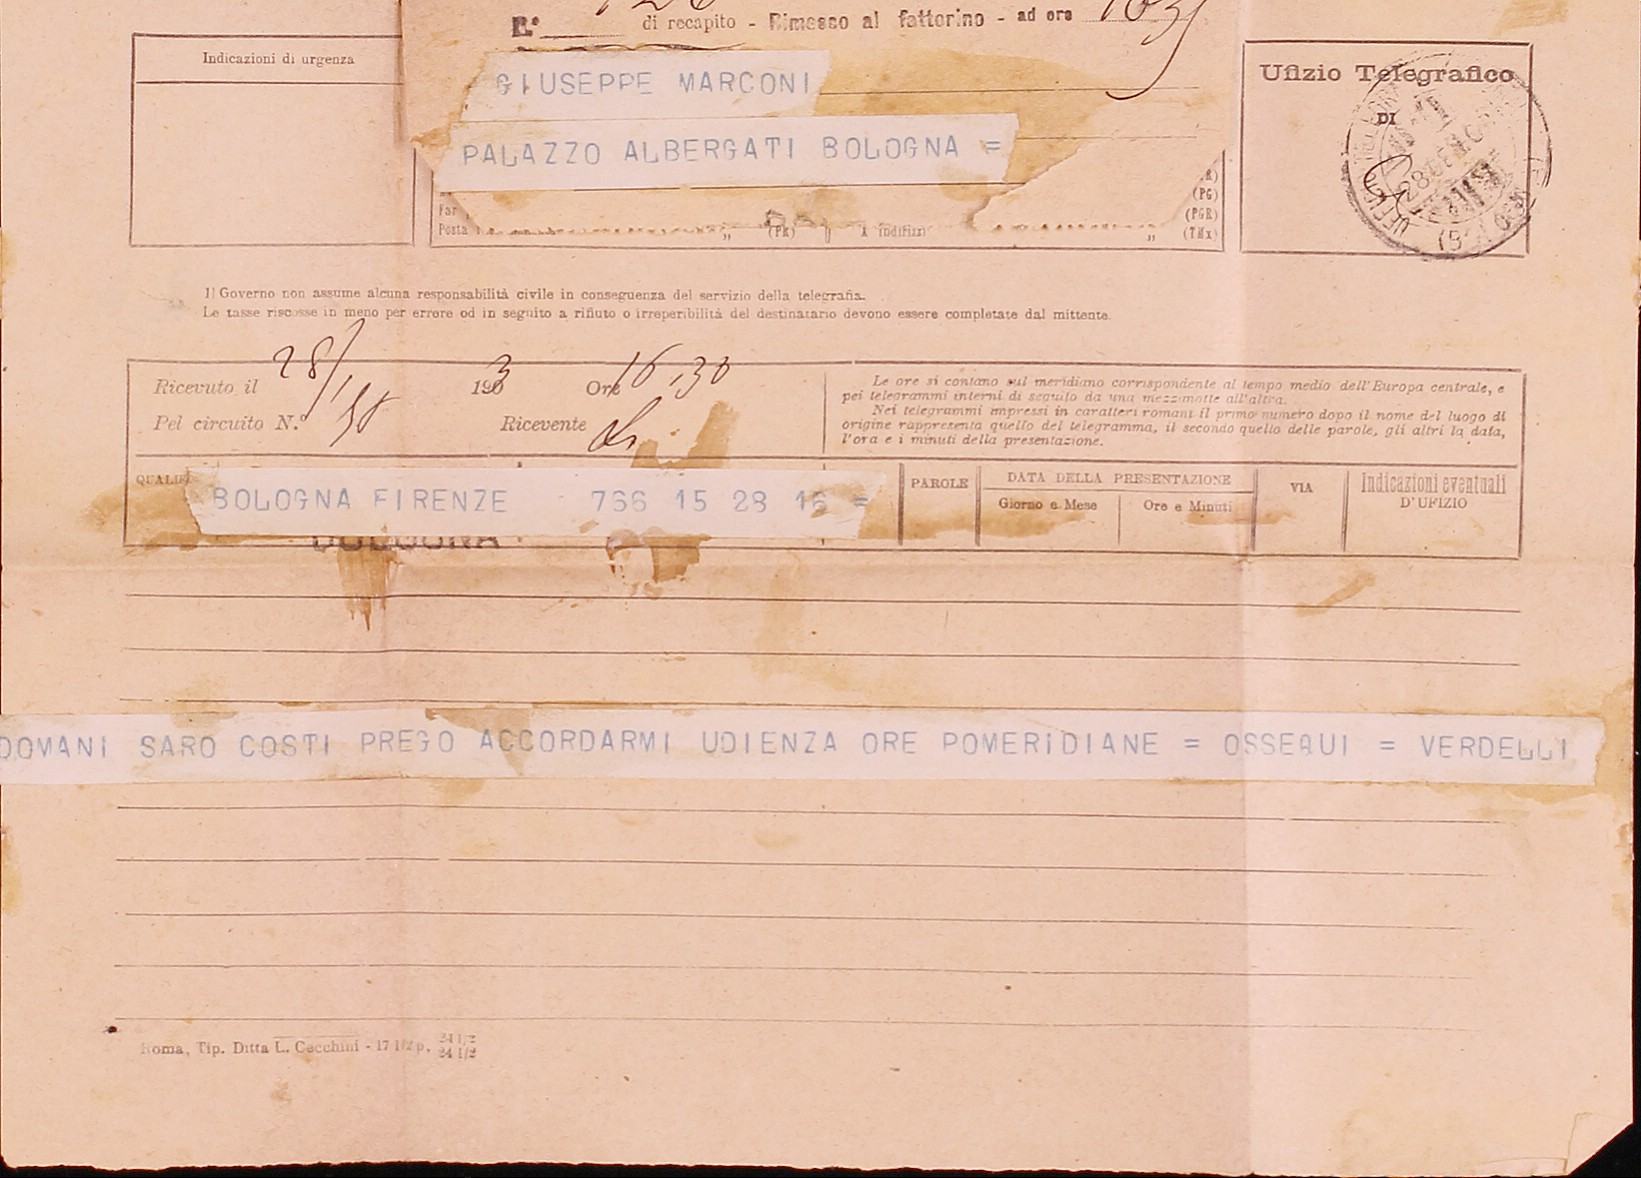 N.° di recapito - Rimesso al fattorino - ad ore
Indicazioni di urgenza
GIUSEPPE MARCONI
PALAZZO ALBERGATI BOLOGNA =
(PG)
(PGR)
Posta (PR) " (TMx)
Ufizio Telegrafico
DI
Il Governo non assume alcuna responsabilità civile in conseguenza del servizio della telegrafia.
Le tasse riscosse in meno per errore od in seguito a rifiuto o irreperibilità del destinatario devono essere completate dal mittente.
Ricevuto il 28/1 1903 Ore 16,30
Pel circuito N.° Ricevente
Le ore si contano sul meridiano corrispondente al tempo medio dell'Europa centrale, e
pei telegrammi interni di seguito da una mezzanotte all'altra.
Nei telegrammi impressi in caratteri romani il primo numero dopo il nome del luogo di
origine rappresenta quello del telegramma, il secondo quello delle parole, gli altri la data,
l'ora e i minuti della presentazione.
BOLOGNA FIRENZE 766 15 28 16 =
PAROLE
DATA DELLA PRESENTAZIONE
Giorno e Mese Ore e Minuti
VIA
Indicazioni eventuali
D'UFIZIO
BOLOGNA
DOMANI SARO COSTI PREGO ACCORDARMI UDIENZA ORE POMERIDIANE = OSSEQUI = VERDELLI
Roma, Tip. Ditta L. Cecchini - 17 1/2 p. 24 1/2
24 1/2